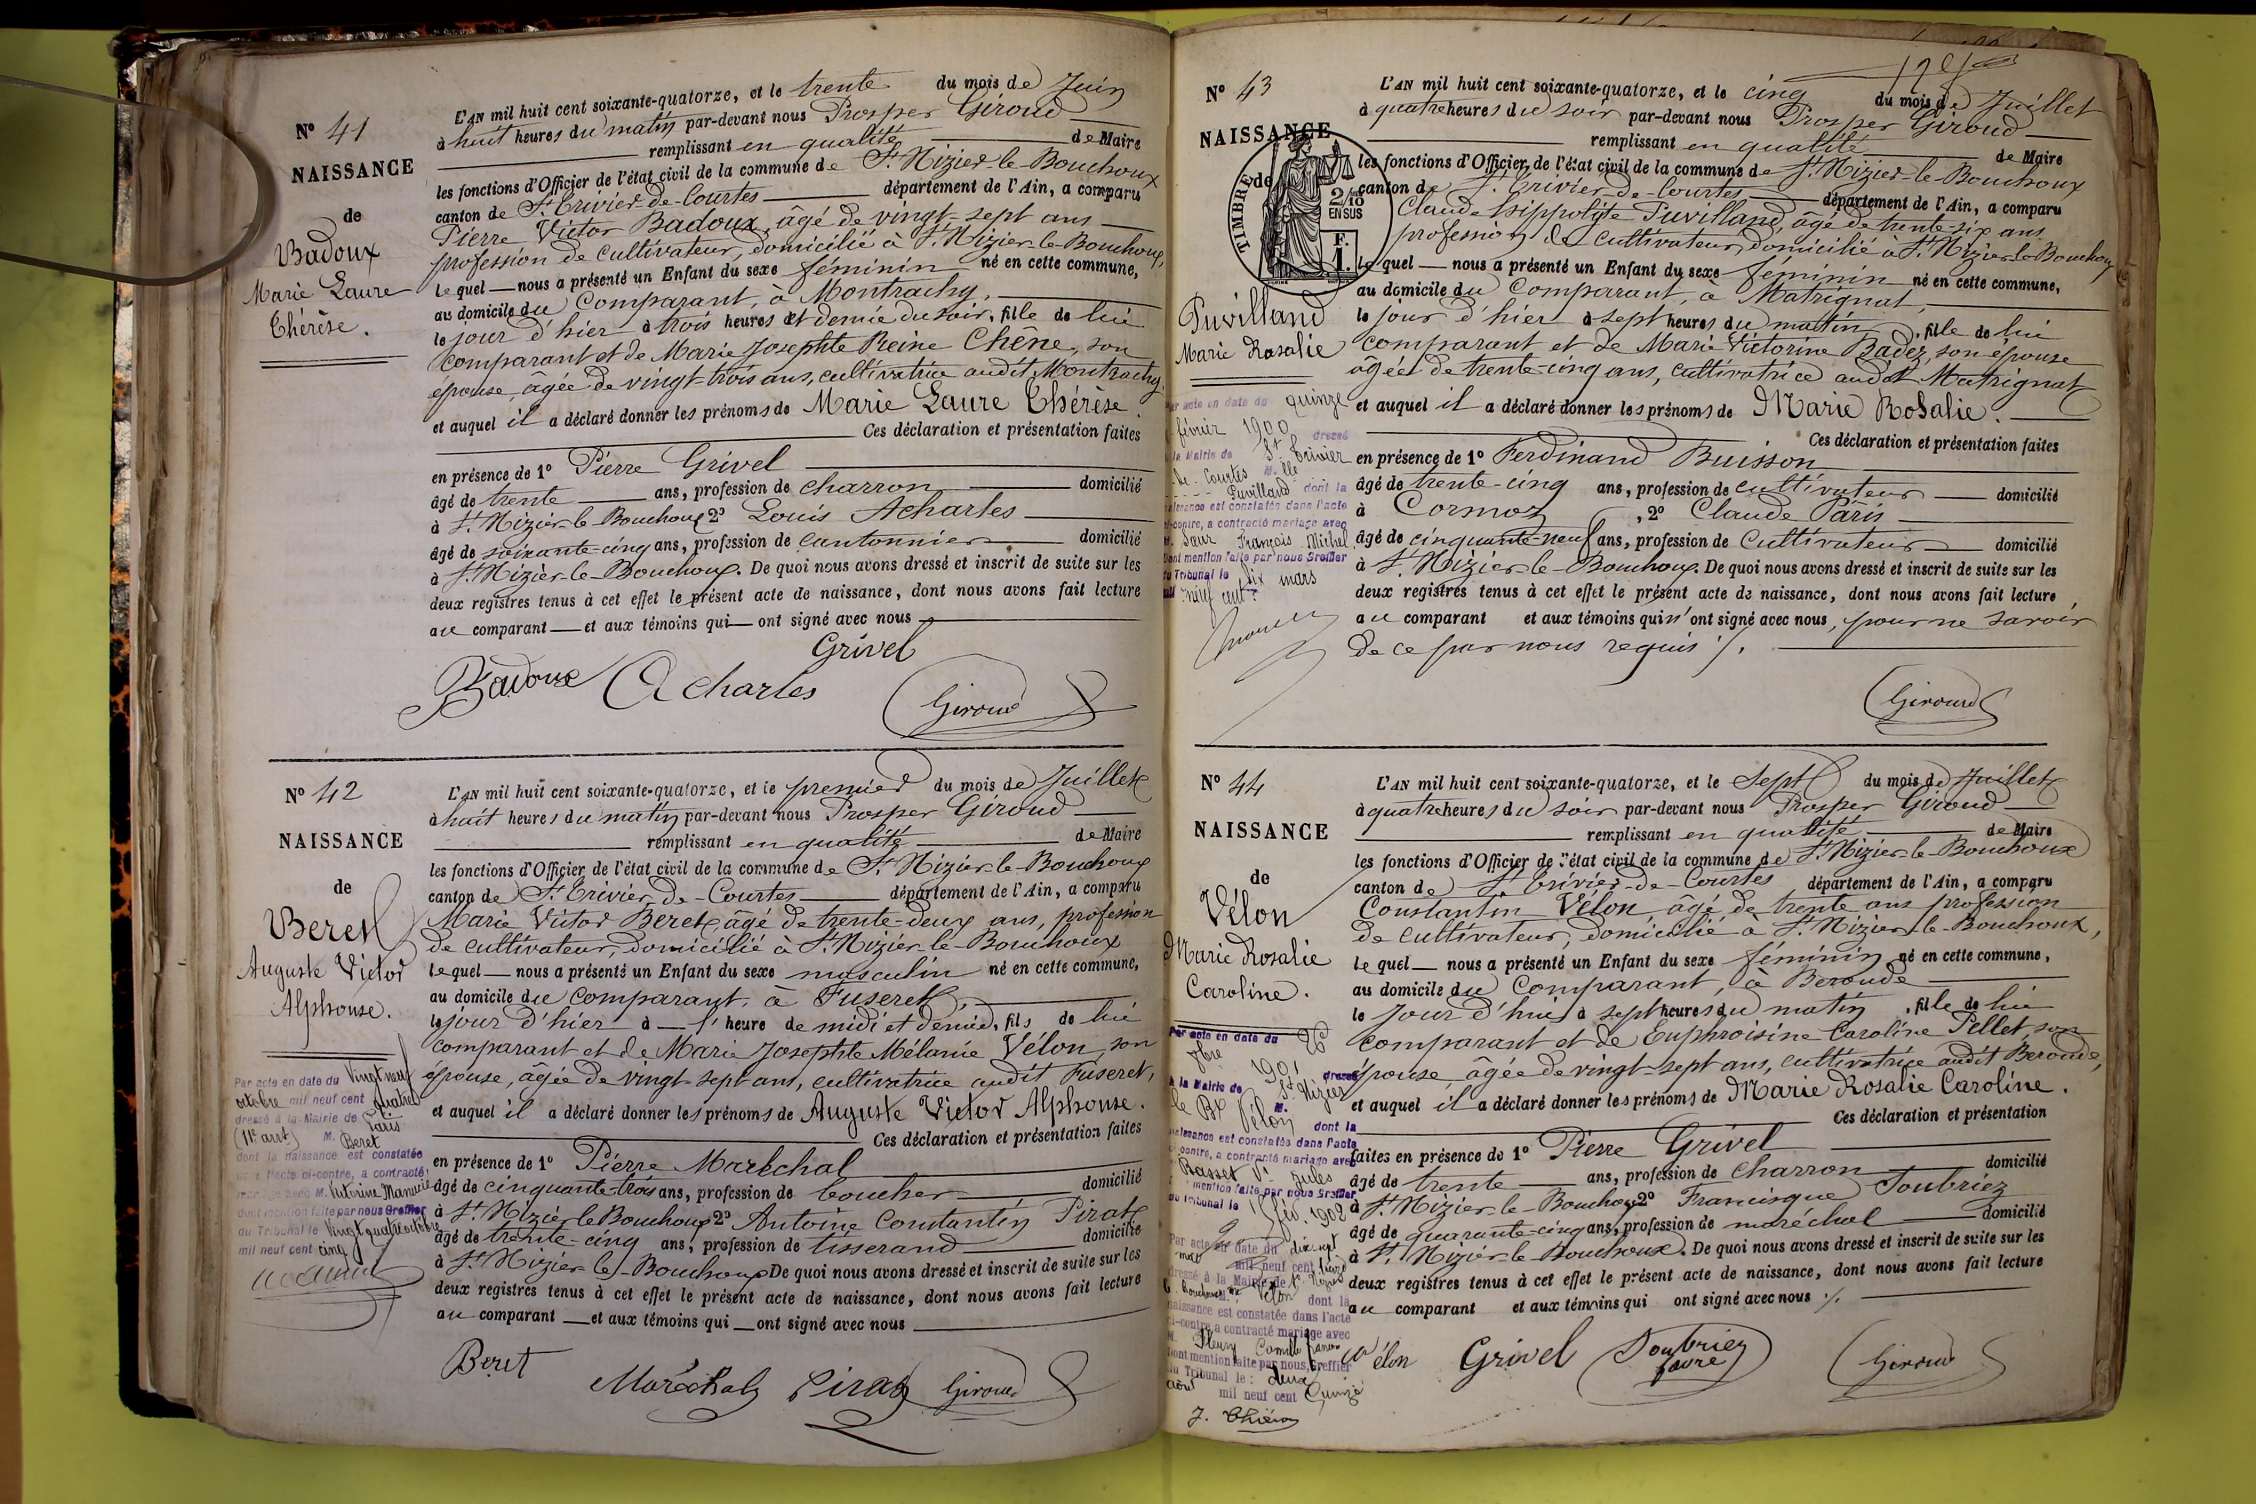 Nº 41
NAISSANCE
de
Badoux
Marie Laure
Thérèse.
L'AN mil huit cent soixante-quatorze, et le trente du mois de Juin
à huit heures du matin par-devant nous Prosper Giroud
remplissant en qualité de Maire
les fonctions d'Officier de l'état civil de la commune de St Nizier-le-Bouchoux
canton de St Trivier-de-Courtes département de l'Ain, a comparu
Pierre Victor Badoux, âgé de vingt-sept ans
profession de cultivateur, domicilié à St Nizier-le-Bouchoux,
lequel nous a présenté un Enfant du sexe féminin né en cette commune,
au domicile du comparant, à Montrachy,
le jour d'hier à trois heures et demie du soir, fille de lui
comparant et de Marie Josephte Reine Chêne, son
épouse, âgée de vingt-trois ans, cultivatrice audit Montrachy
et auquel il a déclaré donner les prénoms de Marie Laure Thérèse.
Ces déclaration et présentation faites
en présence de 1º Pierre Grivel
âgé de trente ans, profession de charron domicilié
à St Nizier-le-Bouchoux 2º Louis Acharles
âgé de soixante-cinq ans, profession de cantonnier domicilié
à St Nizier-le-Bouchoux. De quoi nous avons dressé et inscrit de suite sur les
deux registres tenus à cet effet le présent acte de naissance, dont nous avons fait lecture
au comparant et aux témoins qui ont signé avec nous
Grivel
Badoux Acharles Giroud
Nº 42
NAISSANCE
de
Beret
Auguste Victor
Alphonse.
Par acte en date du Vingt neuf
octobre mil neuf cent quatre
dressé à la Mairie de Paris
(11e arrt) M. Beret
dont la naissance est constatée
dans l'acte ci-contre, a contracté
mariage avec M. Victorine
dont mention faite par nous Greffier
du Tribunal le Vingt quatre octobre
mil neuf cent cinq
L'AN mil huit cent soixante-quatorze, et le premier du mois de Juillet
à huit heures du matin par-devant nous Prosper Giroud
remplissant en qualité de Maire
les fonctions d'Officier de l'état civil de la commune de St Nizier-le-Bouchoux
canton de St Trivier-de-Courtes département de l'Ain, a comparu
Marie Victor Beret, âgé de trente-deux ans, profession
de cultivateur, domicilié à St Nizier-le-Bouchoux
lequel nous a présenté un Enfant du sexe masculin né en cette commune,
au domicile du comparant, à Fuseret,
le jour d'hier à l'heure de midi et demie, fils de lui
comparant et de Marie Josephte Mélanie Vélon, son
épouse, âgée de vingt-sept ans, cultivatrice audit Fuseret,
et auquel il a déclaré donner les prénoms de Auguste Victor Alphonse.
Ces déclaration et présentation faites
en présence de 1º Pierre Maréchal
âgé de cinquante-trois ans, profession de boucher domicilié
à St Nizier-le-Bouchoux 2º Antoine Constantin Pirat
âgé de trente-cinq ans, profession de tisserand domicilié
à St Nizier-le-Bouchoux De quoi nous avons dressé et inscrit de suite sur les
deux registres tenus à cet effet le présent acte de naissance, dont nous avons fait lecture
au comparant et aux témoins qui ont signé avec nous
Beret Maréchal Pirat Giroud
Nº 43
NAISSANCE
de
TIMBRE
2/10
EN SUS
F.
1.
Puvilland
Marie Rosalie
Par acte en date du quinze
février 1900 dressé
à la Mairie de St Trivier
de Courtes M.lle
Puvilland dont la
naissance est constatée dans l'acte
ci-contre, a contracté mariage avec
François Michel
dont mention faite par nous Greffier
du Tribunal le six mars
mil neuf cent
L'AN mil huit cent soixante-quatorze, et le cinq du mois de Juillet
à quatre heures du soir par-devant nous Prosper Giroud
remplissant en qualité de Maire
les fonctions d'Officier de l'état civil de la commune de St Nizier-le-Bouchoux
canton de St Trivier-de-Courtes département de l'Ain, a comparu
Claude Hippolyte Puvilland, âgé de trente-six ans
profession de cultivateur, domicilié à St Nizier-le-Bouchoux
lequel nous a présenté un Enfant du sexe féminin né en cette commune,
au domicile du comparant, à Matrignat,
le jour d'hier à sept heures du matin, fille de lui
comparant et de Marie Victorine Badez, son épouse
âgée de trente-cinq ans, cultivatrice audit Matrignat
et auquel il a déclaré donner les prénoms de Marie Rosalie.
Ces déclaration et présentation faites
en présence de 1º Ferdinand Buisson
âgé de trente-cinq ans, profession de cultivateur domicilié
à Cormoz, 2º Claude Paris
âgé de cinquante-neuf ans, profession de cultivateur domicilié
à St Nizier-le-Bouchoux. De quoi nous avons dressé et inscrit de suite sur les
deux registres tenus à cet effet le présent acte de naissance, dont nous avons fait lecture
au comparant et aux témoins qui n'ont signé avec nous, pour ne savoir
de ce par nous requis /.
Giroud
Nº 44
NAISSANCE
de
Vélon
Marie Rosalie
Caroline.
Par acte en date du 26
9bre 1901 dressé
à la Mairie de St Nizier
le Bx M. Vélon dont la
naissance est constatée dans l'acte
ci-contre, a contracté mariage avec
Basset Jules
mention faite par nous Greffier
du Tribunal le 1902
Par acte en date du dix sept
mil neuf cent
dressé à la Mairie de St Nizier
le Bouchoux M. Vélon dont la
naissance est constatée dans l'acte
ci-contre a contracté mariage avec
M. Fleury Camille
dont mention faite par nous, Greffier
du Tribunal le: deux
août mil neuf cent Quinze
L'AN mil huit cent soixante-quatorze, et le sept du mois de Juillet
à quatre heures du soir par-devant nous Prosper Giroud
remplissant en qualité de Maire
les fonctions d'Officier de l'état civil de la commune de St Nizier-le-Bouchoux
canton de St Trivier-de-Courtes département de l'Ain, a comparu
Constantin Vélon, âgé de trente ans profession
de cultivateur, domicilié à St Nizier-le-Bouchoux,
lequel nous a présenté un Enfant du sexe féminin né en cette commune,
au domicile du comparant, à Beroude
le jour d'hui à sept heures du matin, fille de lui
comparant et de Euphroisine Caroline Pellet, son
épouse âgée de vingt-sept ans, cultivatrice audit Beroude,
et auquel il a déclaré donner les prénoms de Marie Rosalie Caroline.
Ces déclaration et présentation
faites en présence de 1º Pierre Grivel
âgé de trente ans, profession de charron domicilié
à St Nizier-le-Bouchoux 2º Francisque Soubriez
âgé de quarante-cinq ans, profession de maréchal domicilié
à St Nizier-le-Bouchoux. De quoi nous avons dressé et inscrit de suite sur les
deux registres tenus à cet effet le présent acte de naissance, dont nous avons fait lecture
au comparant et aux témoins qui ont signé avec nous /.
Vélon Grivel Soubriez Giroud
favre